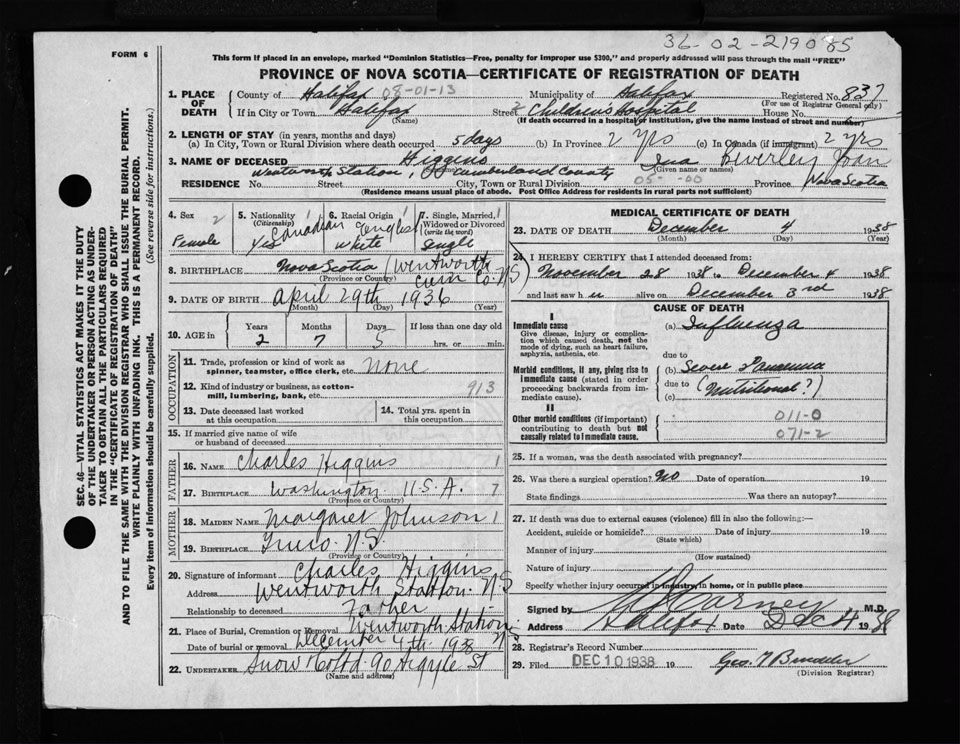 36-02-219085
FORM 6
This form if placed in an envelope, marked "Dominion Statistics—Free, penalty for improper use $300," and properly addressed will pass through the mail "FREE"
PROVINCE OF NOVA SCOTIA—CERTIFICATE OF REGISTRATION OF DEATH
SEC. 46—VITAL STATISTICS ACT MAKES IT THE DUTY
OF THE UNDERTAKER OR PERSON ACTING AS UNDER-
TAKER TO OBTAIN ALL THE PARTICULARS REQUIRED
IN THE "CERTIFICATE OF REGISTRATION OF DEATH"
AND TO FILE THE SAME WITH THE DIVISION REGISTRAR WHO SHALL ISSUE THE BURIAL PERMIT.
WRITE PLAINLY WITH UNFADING INK. THIS IS A PERMANENT RECORD.
Every item of information should be carefully supplied. (See reverse side for instructions.)
1. PLACE OF DEATH
County of Halifax 08-01-13 Municipality of Halifax Registered No. 837
(For use of Registrar General only)
If in City or Town Halifax Street Children's Hospital House No.
(Name) (If death occurred in a hospital or institution, give the name instead of street and number)
2. LENGTH OF STAY (in years, months and days)
(a) In City, Town or Rural Division where death occurred 5 days (b) In Province 2 yrs (c) In Canada (if immigrant) 2 yrs
3. NAME OF DECEASED Higgins Ina Beverley Joan
(Given name or names)
Wentworth Station, Cumberland County
RESIDENCE No. Street City, Town or Rural Division 05-00 Province Nova Scotia
(Residence means usual place of abode. Post Office Address for residents in rural parts not sufficient)
4. Sex 2 Female
5. Nationality (Citizenship) Canadian 1
6. Racial Origin English White 1
7. Single, Married, Widowed or Divorced (write the word) Single 1
8. BIRTHPLACE Nova Scotia (Wentworth Cum Co. NS)
(Province or Country)
9. DATE OF BIRTH April 29th 1936
(Month) (Day) (Year)
10. AGE in Years Months Days If less than one day old
2 7 5 hrs. or min.
OCCUPATION
11. Trade, profession or kind of work as spinner, teamster, office clerk, etc. None
12. Kind of industry or business, as cotton-mill, lumbering, bank, etc. 913
13. Date deceased last worked at this occupation
14. Total yrs. spent in this occupation
15. If married give name of wife or husband of deceased
FATHER
16. NAME Charles Higgins 1
17. BIRTHPLACE Washington U.S.A. 7
(Province or Country)
MOTHER
18. MAIDEN NAME Margaret Johnson 1
19. BIRTHPLACE Truro N.S.
(Province or Country)
20. Signature of informant Charles Higgins
Address Wentworth Station NS
Relationship to deceased Father
21. Place of Burial, Cremation or Removal Wentworth Station
Date of burial or removal December 4th 1938
22. UNDERTAKER Snow & Co Ltd. 90 Argyle St
(Name and address)
MEDICAL CERTIFICATE OF DEATH
23. DATE OF DEATH December 4 1938
(Month) (Day) (Year)
24. I HEREBY CERTIFY that I attended deceased from:
November 28 1938 to December 4 1938
and last saw h er alive on December 3rd 1938
CAUSE OF DEATH
I
Immediate cause
Give disease, injury or complication which caused death, not the mode of dying, such as heart failure, asphyxia, asthenia, etc.
(a) Influenza
due to
Morbid conditions, if any, giving rise to immediate cause (stated in order proceeding backwards from immediate cause).
(b) Severe
due to
(c) (Nutritional?)
II
Other morbid conditions (if important) contributing to death but not causally related to immediate cause.
011-0
071-2
25. If a woman, was the death associated with pregnancy?
26. Was there a surgical operation? No Date of operation 19
State findings Was there an autopsy?
27. If death was due to external causes (violence) fill in also the following:—
Accident, suicide or homicide? Date of injury 19
(State which)
Manner of injury
(How sustained)
Nature of injury
Specify whether injury occurred in industry, in home, or in public place
Signed by Carney M.D.
Address Halifax Dec 4 1938
28. Registrar's Record Number
29. Filed DEC 10 1938 19
(Division Registrar)